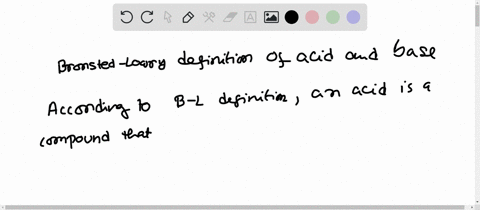 Bronsted-Lowry definition of acid and base
According to B-L definition, an acid is a
compound that